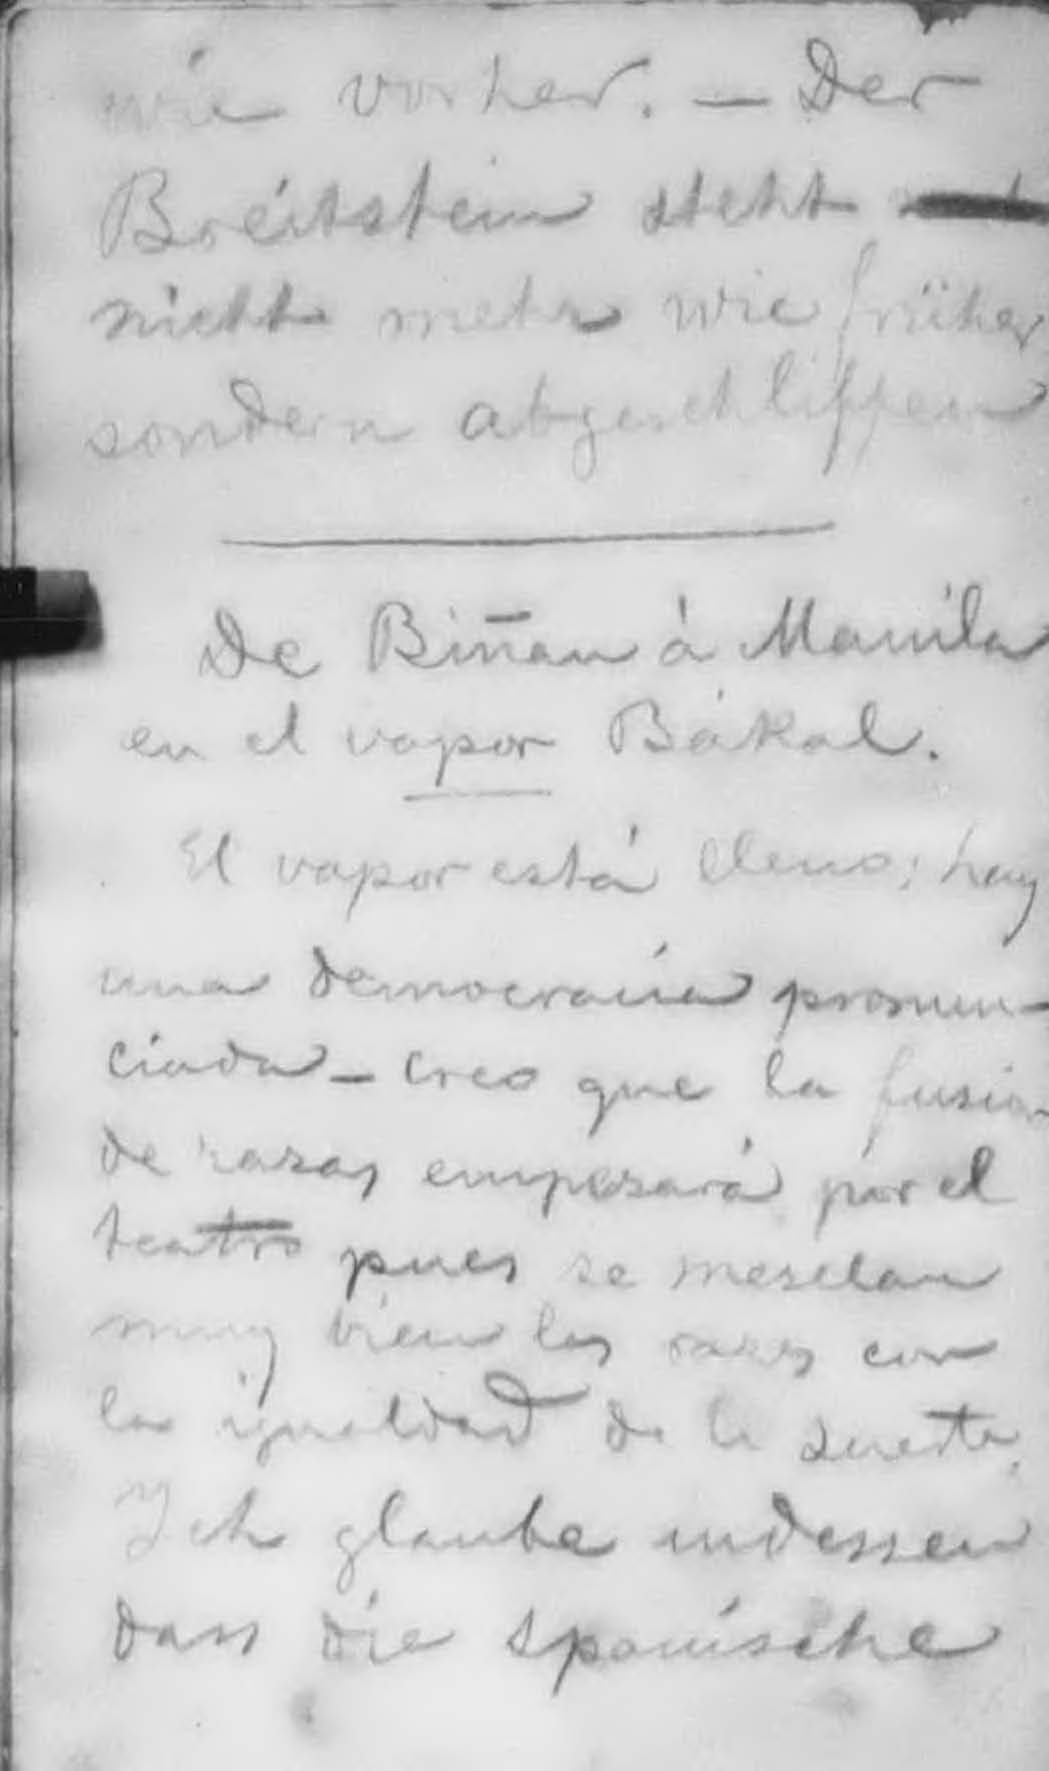 wie vorher. — Der
Breitstein steht
nicht mehr wie früher
sondern abgeschliffen
De Biñan á Manila
en el vapor Bákal.
El vapor está lleno; hay
una democracia pronun-
ciada — Creo que la fusion
de razas empezará por el
teatro pues se mesclan
muy bien las razas con
la igualdad de la suerte.
Ich glaube indessen
dass die spanische